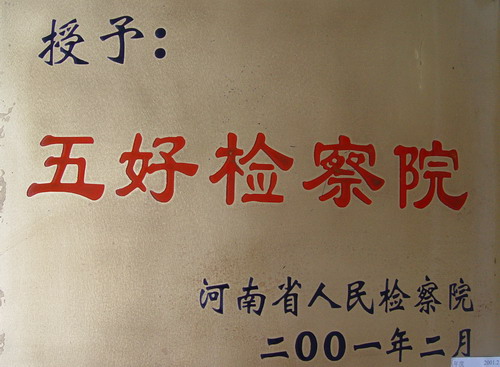 授予：
五好检察院
河南省人民检察院
二〇〇一年二月
2001.2